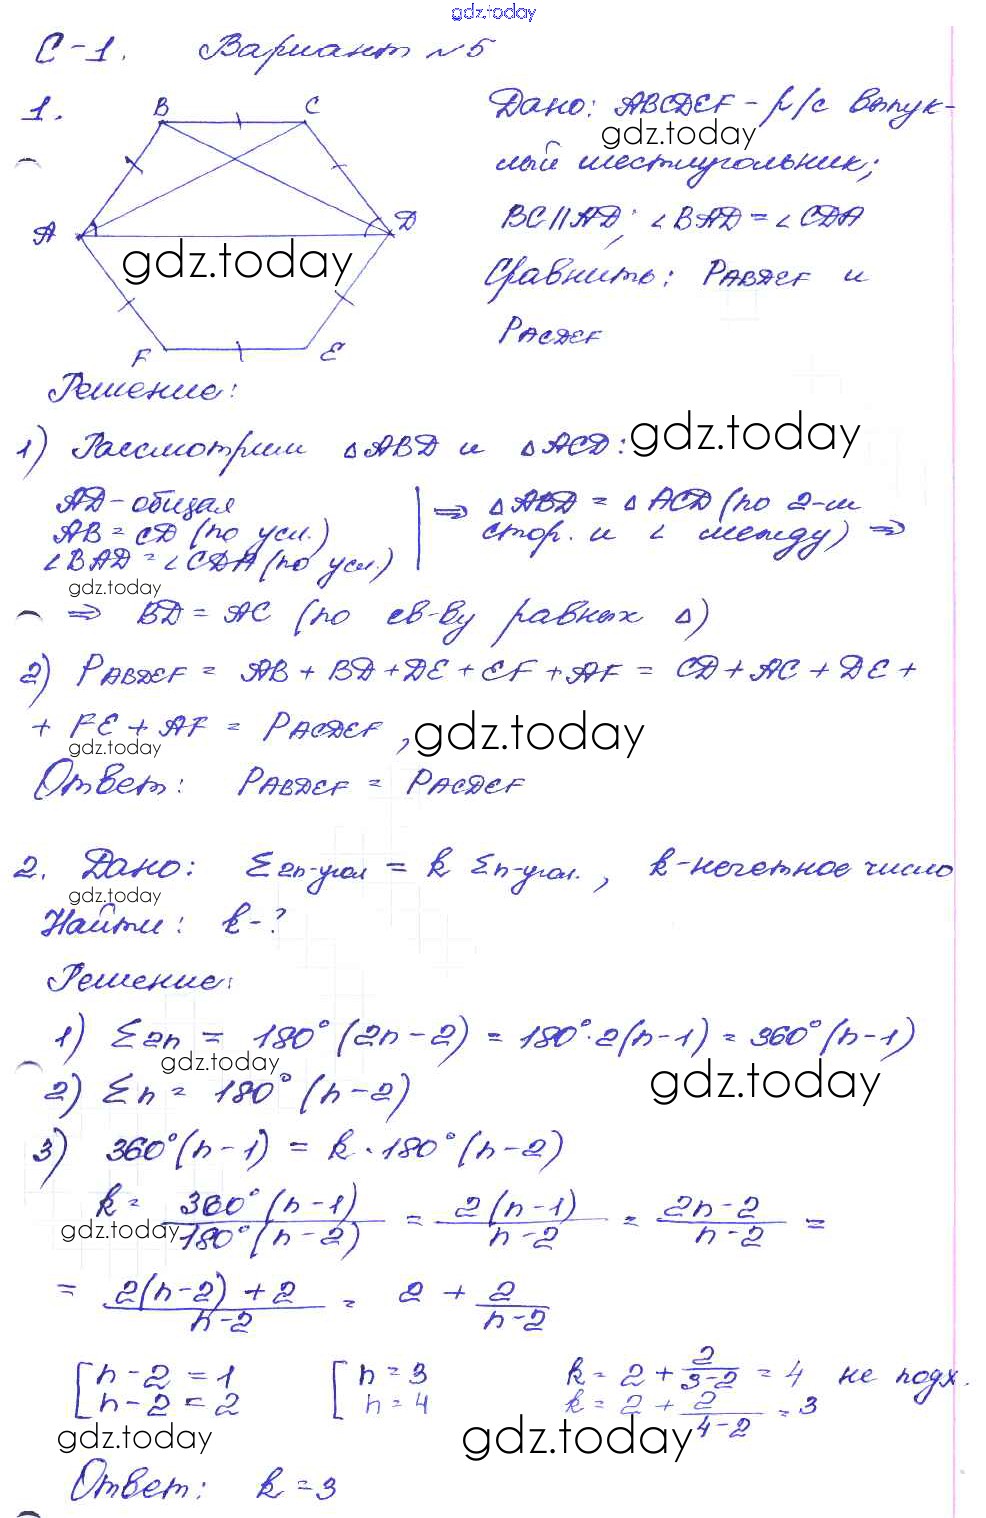 gdz.today
С-1. Вариант №5
1.
B C
A D
F E
Дано: ABCDEF - р/с выпук-
gdz.today
лый шестиугольник;
BC || AD; ∠BAD = ∠CDA
gdz.today
Сравнить: PABDEF и
PACDEF
Решение:
1) Рассмотрим △ABD и △ACD: gdz.today
AD - общая
AB = CD (по усл.)
∠BAD = ∠CDA (по усл.)
⇒ △ABD = △ACD (по 2-м
стор. и ∠ между) ⇒
gdz.today
⇒ BD = AC (по св-ву равных △)
2) PABDEF = AB + BD + DE + EF + AF = CD + AC + DE +
+ FE + AF = PACDEF, gdz.today
gdz.today
Ответ: PABDEF = PACDEF
2. Дано: Σ2n-угол = k Σn-угол., k - нечетное число
gdz.today
Найти: k - ?
Решение:
1) Σ2n = 180° (2n - 2) = 180° · 2(n - 1) = 360° (n - 1)
gdz.today
gdz.today
2) Σn = 180° (n - 2)
3) 360° (n - 1) = k · 180° (n - 2)
k = 360° (n - 1) / 180° (n - 2) = 2(n - 1) / n - 2 = 2n - 2 / n - 2 =
gdz.today
= 2(n - 2) + 2 / n - 2 = 2 + 2 / n - 2
[ n - 2 = 1 [ n = 3 k = 2 + 2 / 3 - 2 = 4 не подх.
n - 2 = 2 n = 4 k = 2 + 2 / 4 - 2 = 3
gdz.today gdz.today
Ответ: k = 3